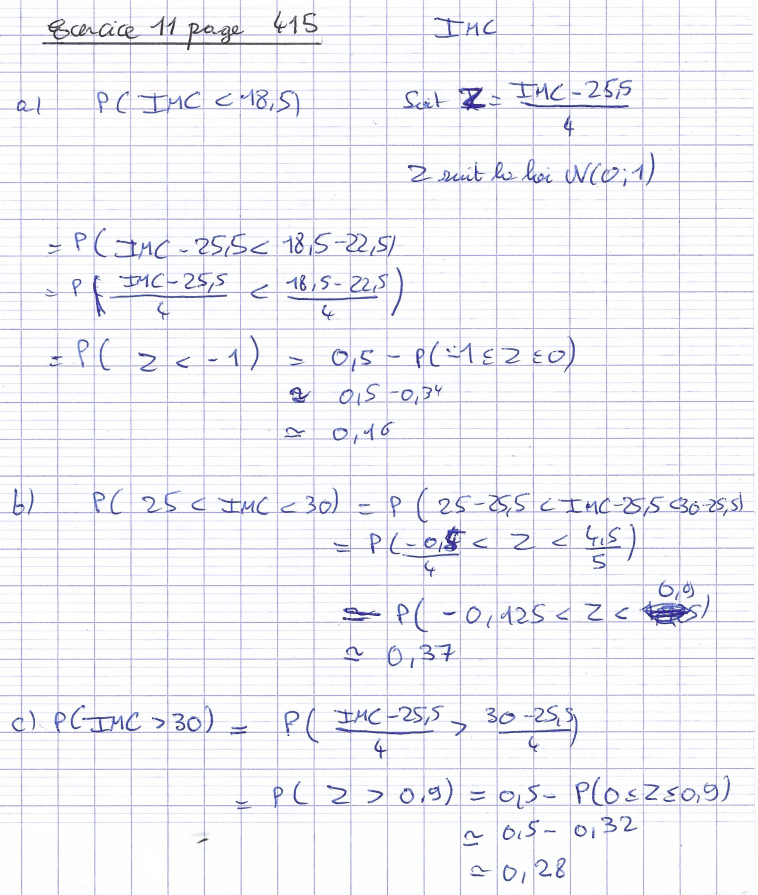 Exercice 11 page 415 IMC
a) P( IMC < 18,5) Soit Z = (IMC - 25,5)/4
Z suit la loi N(0;1)
= P( IMC - 25,5 < 18,5 - 22,5)
= P( (IMC - 25,5)/4 < (18,5 - 22,5)/4 )
= P( Z < -1) = 0,5 - P(-1 ≤ Z ≤ 0)
≃ 0,5 - 0,34
≃ 0,16
b) P( 25 < IMC < 30) = P( 25 - 25,5 < IMC - 25,5 < 30 - 25,5)
= P( -0,5/4 < Z < 4,5/5 )
≃ P( -0,125 < Z < 0,9)
≃ 0,37
c) P(IMC > 30) = P( (IMC - 25,5)/4 > (30 - 25,5)/4 )
= P( Z > 0,9) = 0,5 - P(0 ≤ Z ≤ 0,9)
≃ 0,5 - 0,32
≃ 0,28